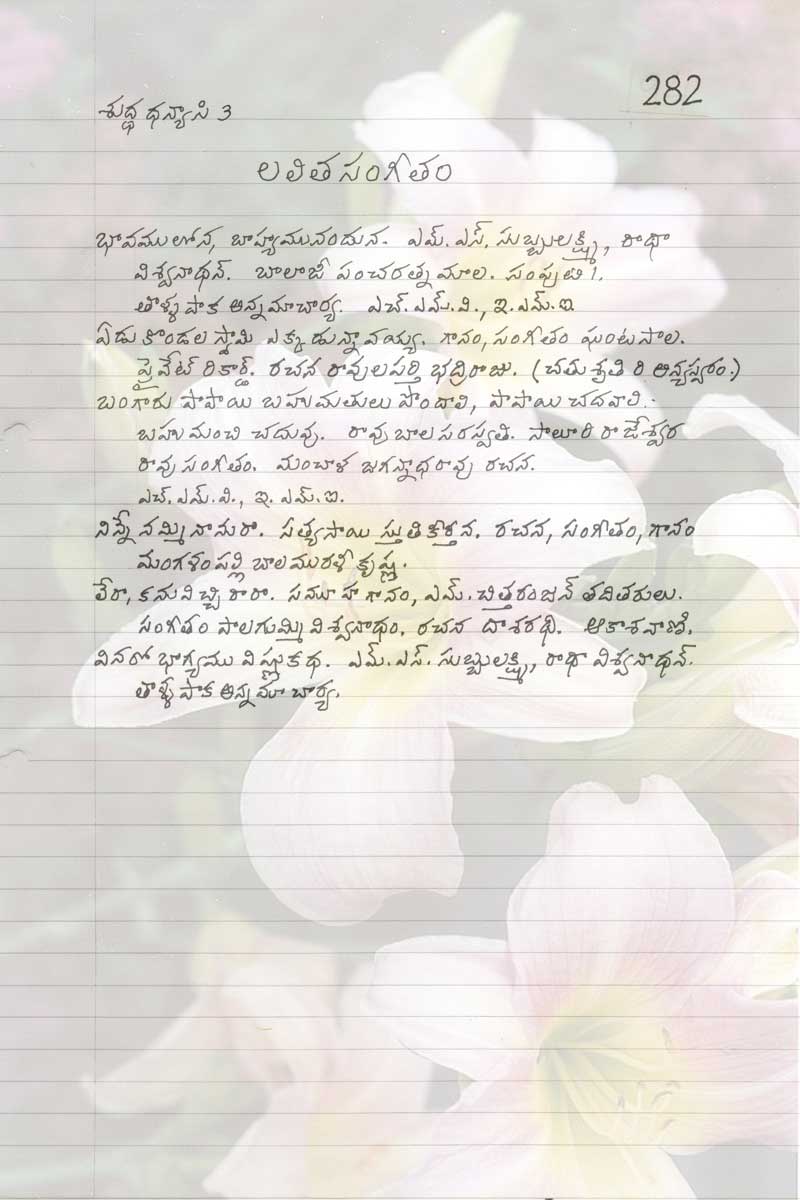 282
శుద్ధ ధన్యాసి 3
లలిత సంగీతం
భావములోన, బాహ్యామునందున. ఎమ్. ఎస్. సుబ్బులక్ష్మి, రాధా
విశ్వనాథన్. బాలాజీ పంచరత్న మాల. సంపుటి 1.
తాళ్ళ పాక అన్నమాచార్య. ఎచ్. ఎమ్. వి., ఇ. ఎమ్. ఐ
ఏడు కొండల స్వామి ఎక్క డున్నావయ్య. గానం, సంగీతం ఘంటసాల.
ప్రైవేట్ రికార్డ్. రచన రావులపర్తి భద్రిరాజు. (చతుశ్రుతి రి అన్యస్వరం.)
బంగారు పాపాయి బహుమతులు పొందాలి, పాపాయి చదవాలి.
బహు మంచి చదువు. రావు బాల సరస్వతి. సాలూరి రాజేశ్వర
రావు సంగీతం. మంచాళ జగన్నాధరావు రచన.
ఎచ్. ఎమ్. వి., ఇ. ఎమ్. ఐ.
నిన్నే నమ్మినానురో. సత్యసాయి స్తుతి కీర్తన. రచన, సంగీతం, గానం
మంగళంపల్లి బాలమురళీ కృష్ణ.
లేరా, కనువిచ్చి రారా. సమూహ గానం, ఎమ్. చిత్తరంజన్ తదితరులు.
సంగీతం పాలగుమ్మి విశ్వనాధం. రచన దాశరధి. ఆకాశవాణి.
వినరో భాగ్యము విష్ణుకథ. ఎమ్. ఎస్. సుబ్బులక్ష్మి, రాధా విశ్వనాథన్.
తాళ్ళ పాక అన్నమాచార్య.